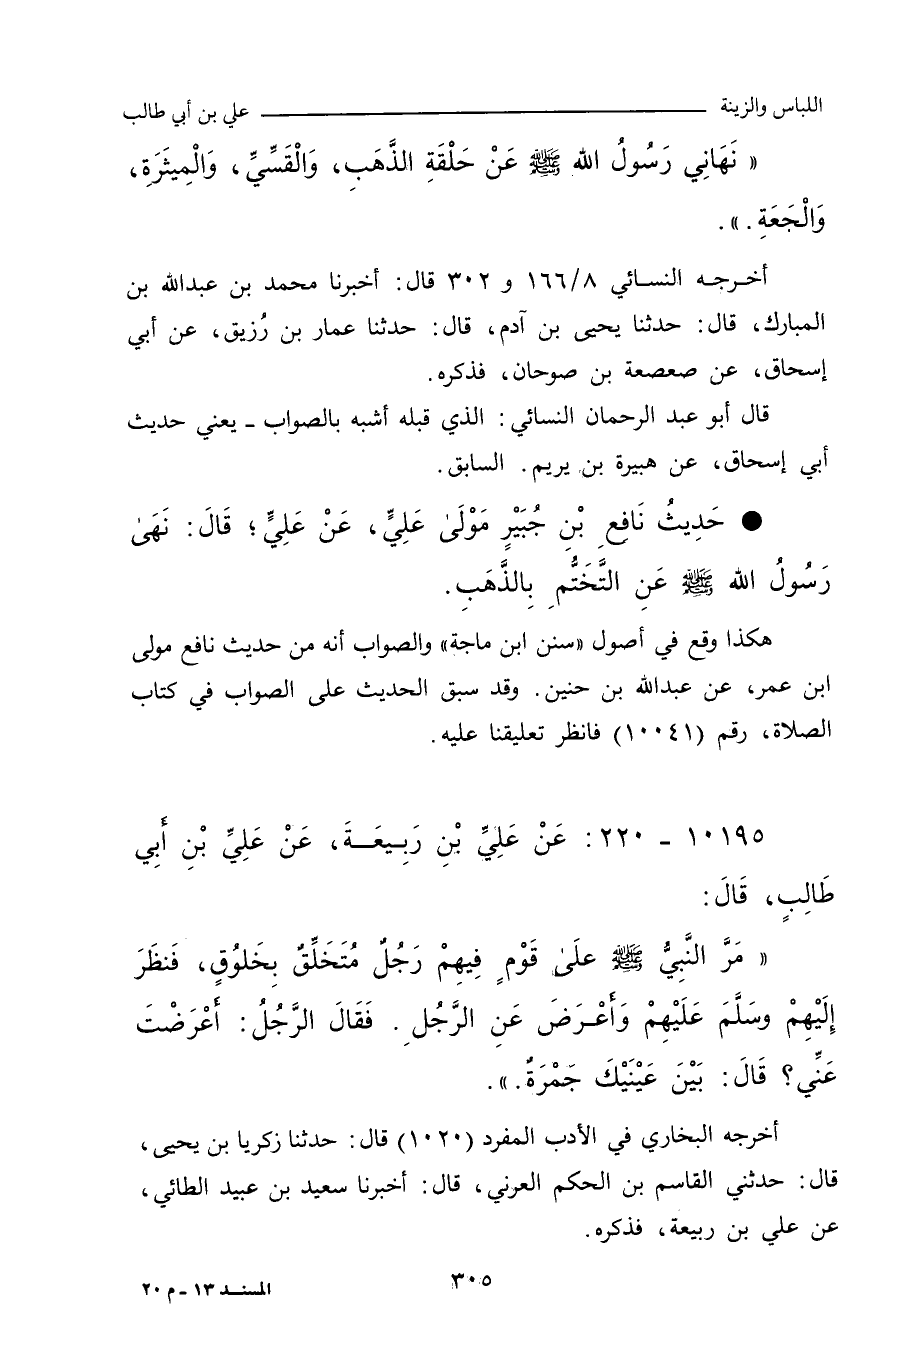 اللباس والزينة ــــــــــــــــــــــــــــــــ علي بن أبي طالب
« نَهَانِي رَسُولُ الله ﷺ عَنْ حَلْقَةِ الذَّهَبِ، وَالْقَسِّيِّ، وَالْمِيثَرَةِ،
وَالْجَعَةِ. ».
أخـرجـه النسـائي ١٦٦/٨ و ٣٠٢ قال: أخبرنا محمد بن عبدالله بن
المبارك، قال: حدثنا يحيى بن آدم، قال: حدثنا عمار بن رُزيق، عن أبي
إسحاق، عن صعصعة بن صوحان، فذكره.
قال أبو عبد الرحمان النسائي: الذي قبله أشبه بالصواب ـ يعني حديث
أبي إسحاق، عن هبيرة بن يريم. السابق.
● حَدِيثُ نَافِعِ بْنِ جُبَيْرٍ مَوْلَىٰ عَلِيٍّ، عَنْ عَلِيٍّ؛ قَالَ: نَهَىٰ
رَسُولُ الله ﷺ عَنِ التَّخَتُّمِ بِالذَّهَبِ.
هكذا وقع في أصول «سنن ابن ماجة» والصواب أنه من حديث نافع مولى
ابن عمر، عن عبدالله بن حنين. وقد سبق الحديث على الصواب في كتاب
الصلاة، رقم (١٠٠٤١) فانظر تعليقنا عليه.
١٠١٩٥ ـ ٢٢٠: عَنْ عَلِيِّ بْنِ رَبِـيعَـــةَ، عَنْ عَلِيِّ بْنِ أَبِي
طَالِبٍ، قَالَ:
« مَرَّ النَّبِيُّ ﷺ علَىٰ قَوْمٍ فِيهِمْ رَجُلٌ مُتَخَلِّقٌ بِخَلوُقٍ، فَنظَرَ
إِلَيْهِمْ وسَلَّمَ عَلَيْهِمْ وَأَعْـرَضَ عَنِ الرَّجُلِ. فَقَالَ الرَّجُلُ: أَعْرَضْتَ
عَنِّي؟ قَالَ: بَيْنَ عَيْنَيْكَ جَمْرَةٌ. ».
أخرجه البخاري في الأدب المفرد (١٠٢٠) قال: حدثنا زكريا بن يحيى،
قال: حدثني القاسم بن الحكم العرني، قال: أخبرنا سعيد بن عبيد الطائي،
عن علي بن ربيعة، فذكره.
٣٠٥
المسنــد ١٣ ـ م ٢٠